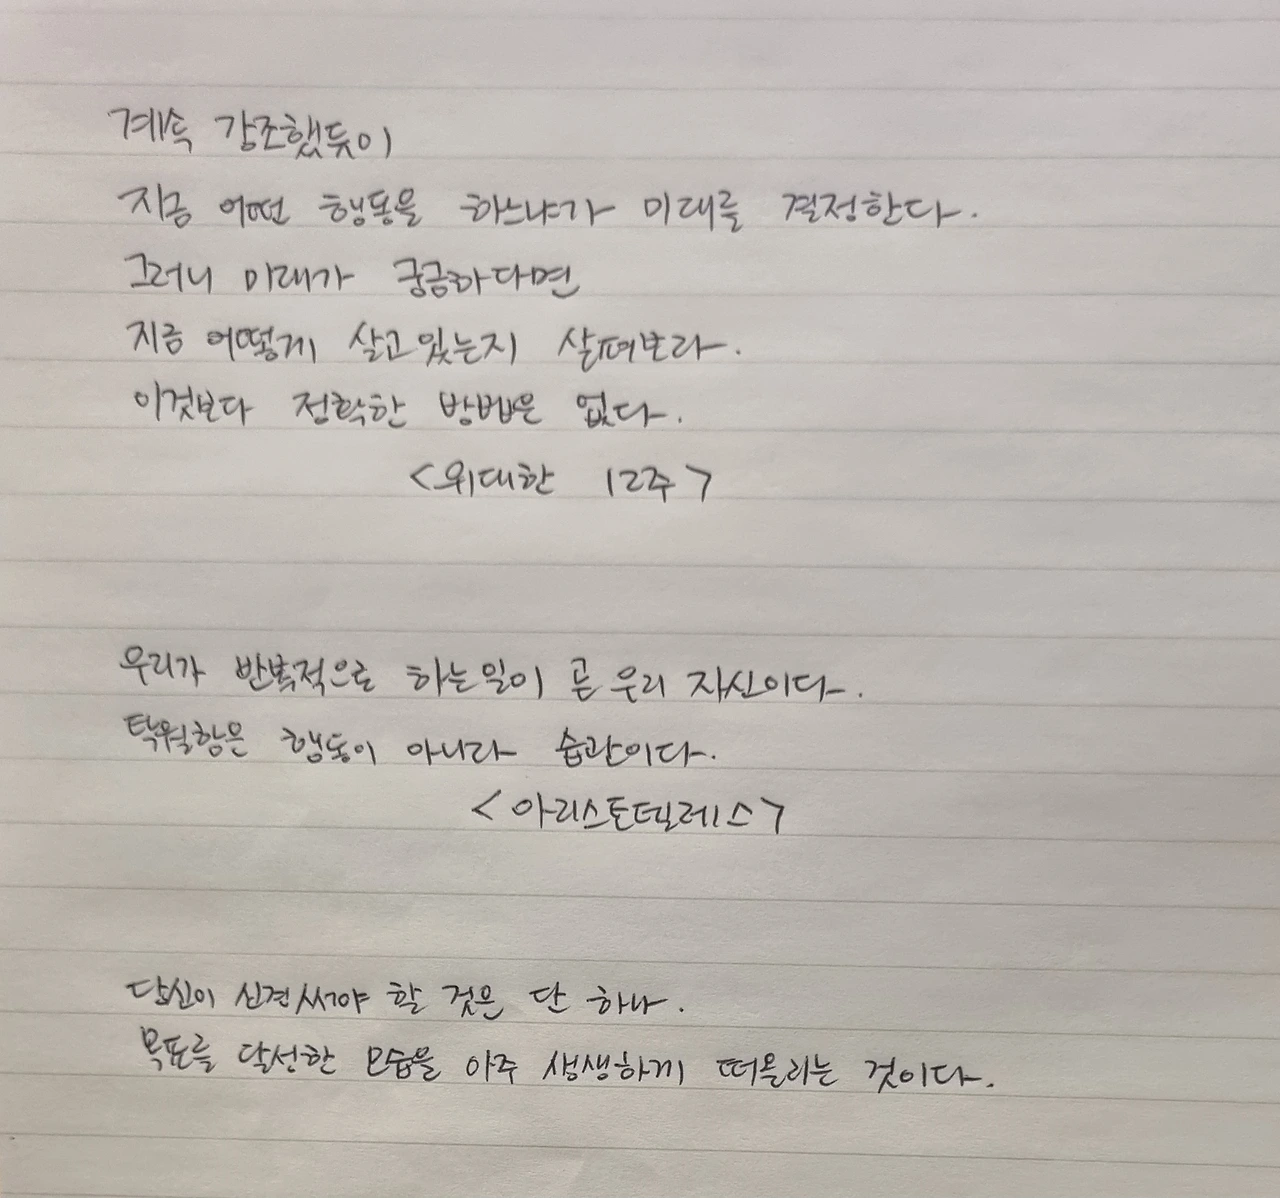 계속 강조했듯이
지금 어떤 행동을 하느냐가 미래를 결정한다.
그러니 미래가 궁금하다면
지금 어떻게 살고있는지 살펴보라.
이것보다 정확한 방법은 없다.
<위대한 12주>
우리가 반복적으로 하는일이 곧 우리 자신이다.
탁월함은 행동이 아니라 습관이다.
<아리스토텔레스>
당신이 신경써야 할 것은 단 하나.
목표를 달성한 모습을 아주 생생하게 떠올리는 것이다.